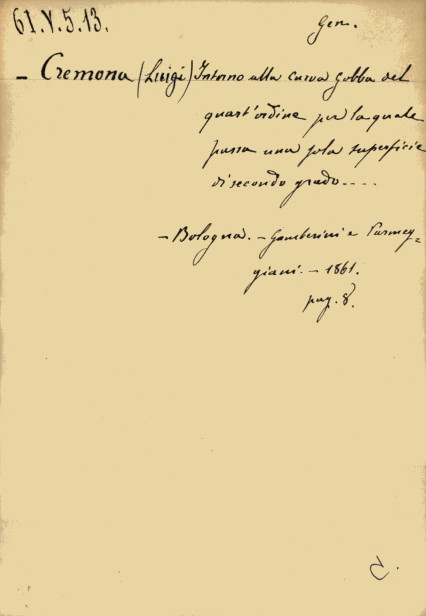 61.V.5.13.
Gen.
– Cremona (Luigi) Intorno alla curva gobba del
quart'ordine per la quale
passa una sola superficie
di secondo grado....
– Bologna. – Gamberini e Parmeg=
giani. – 1861.
pag. 8.
C.